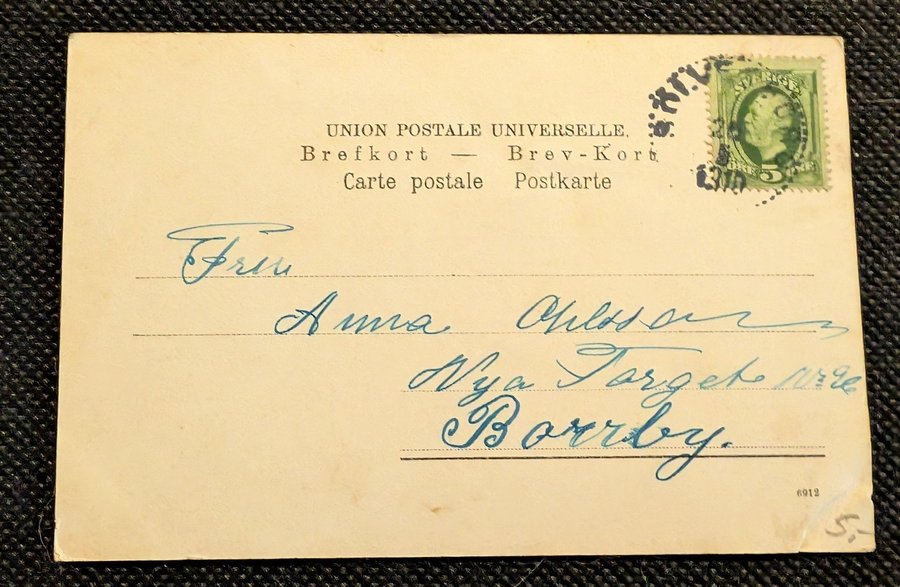 SVERIGE
5
UNION POSTALE UNIVERSELLE.
Brefkort — Brev-Kort
Carte postale Postkarte
Fru
Anna Ohlsson
Nya Torget
Borrby.
6912
5,-